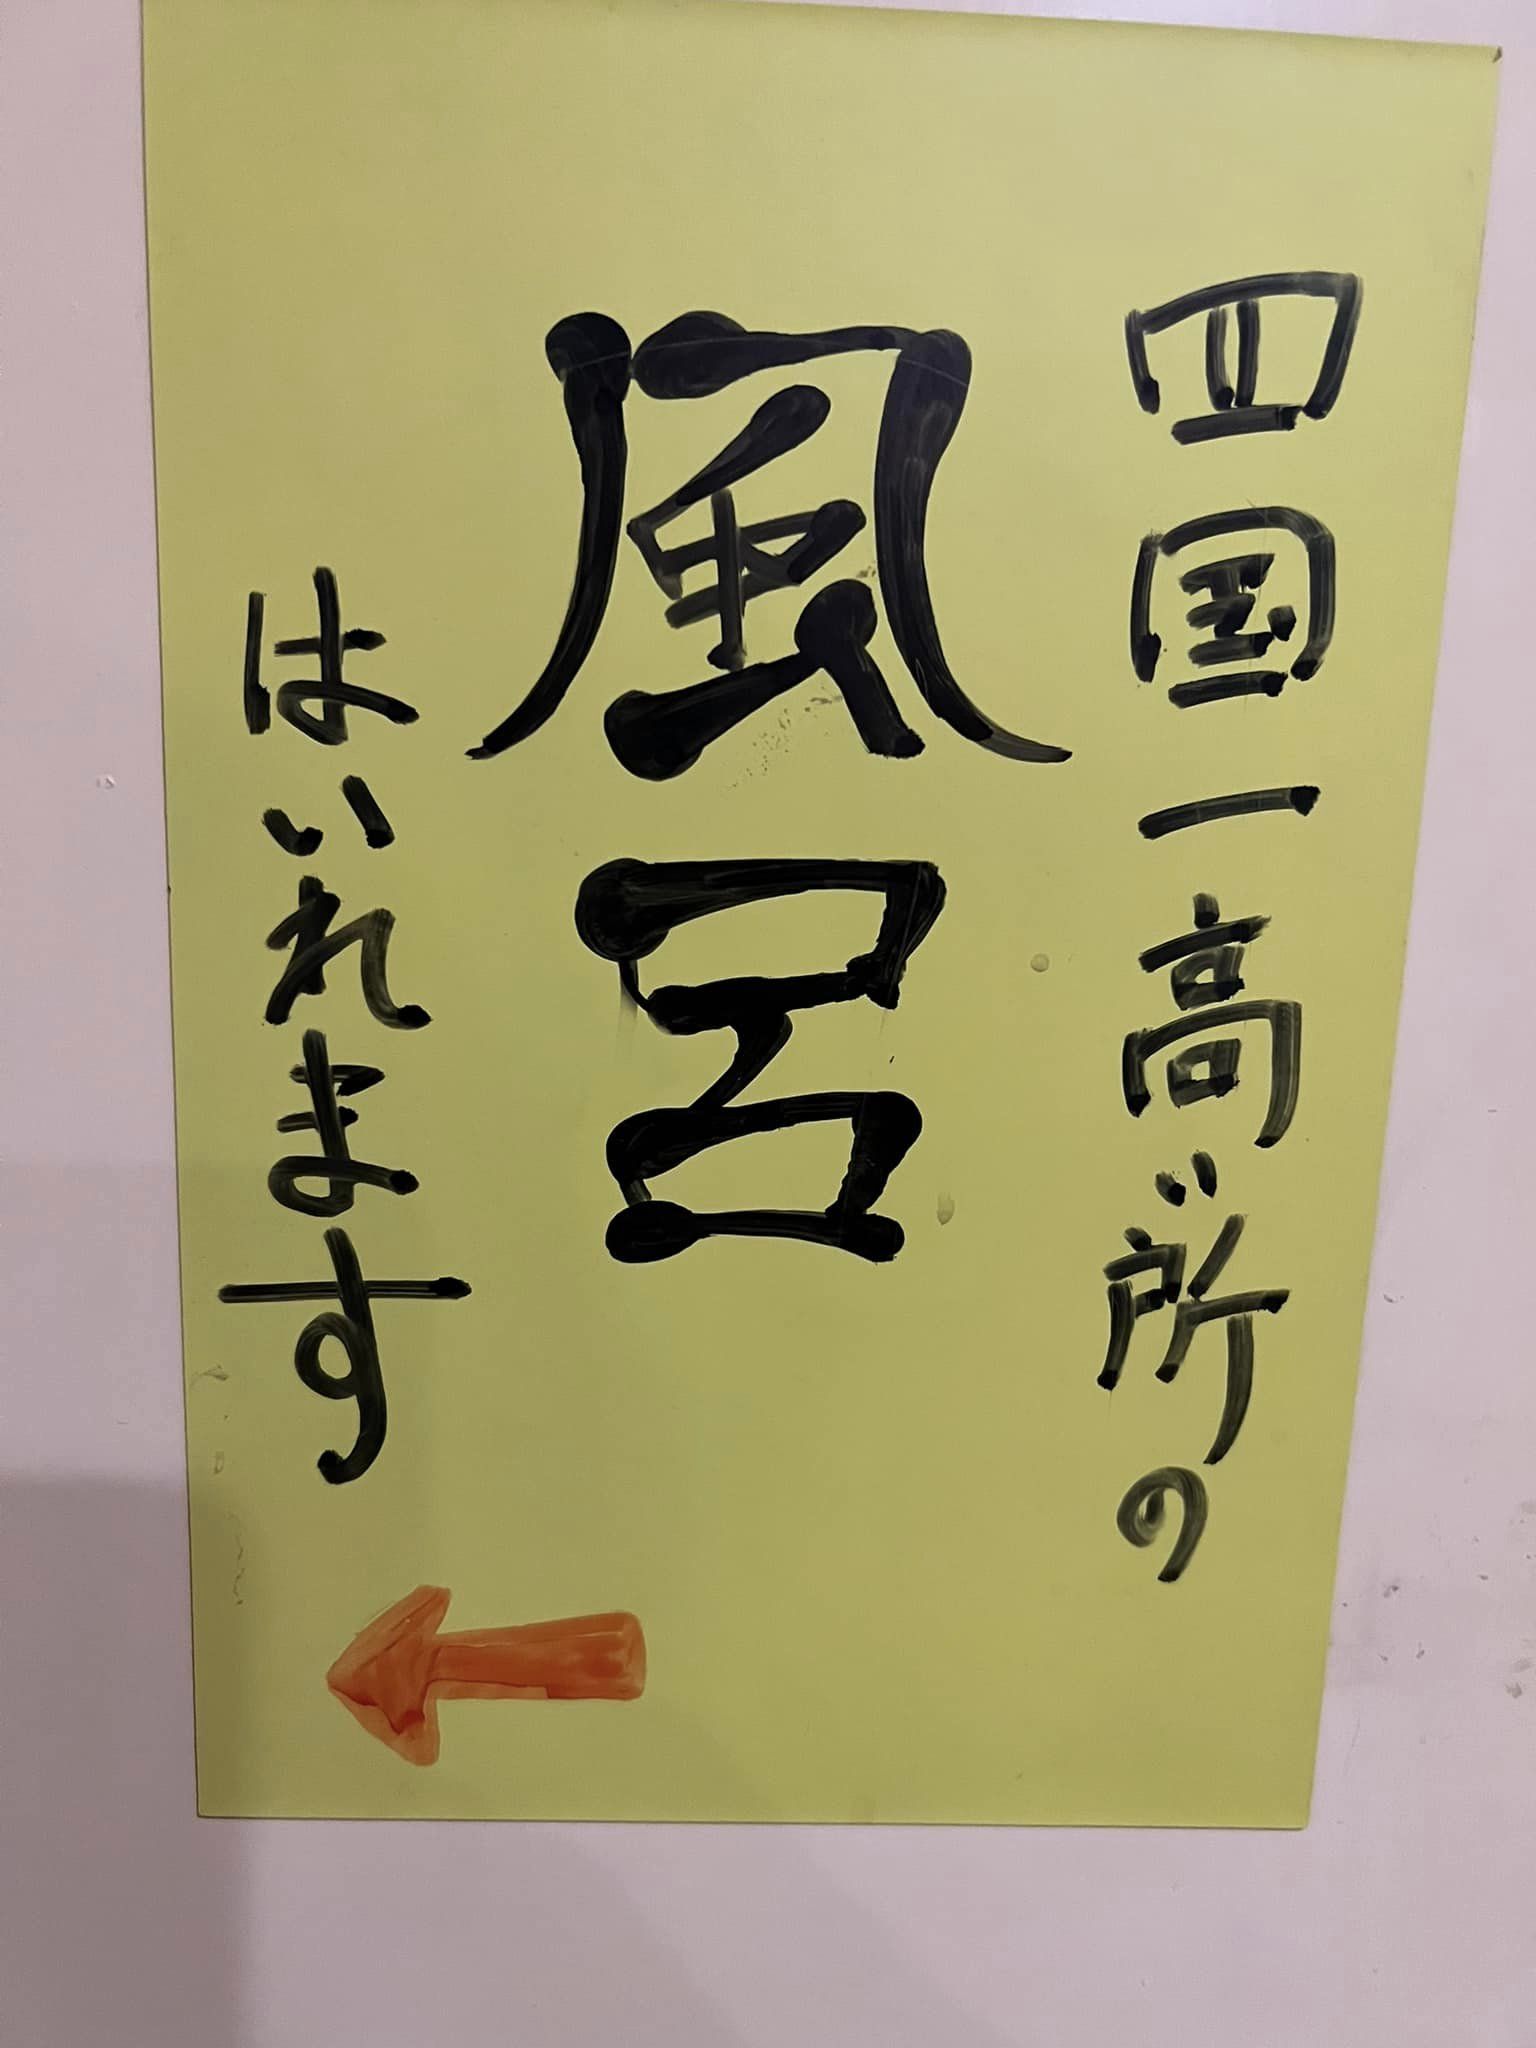 四国一高い所の
風呂
はいれます